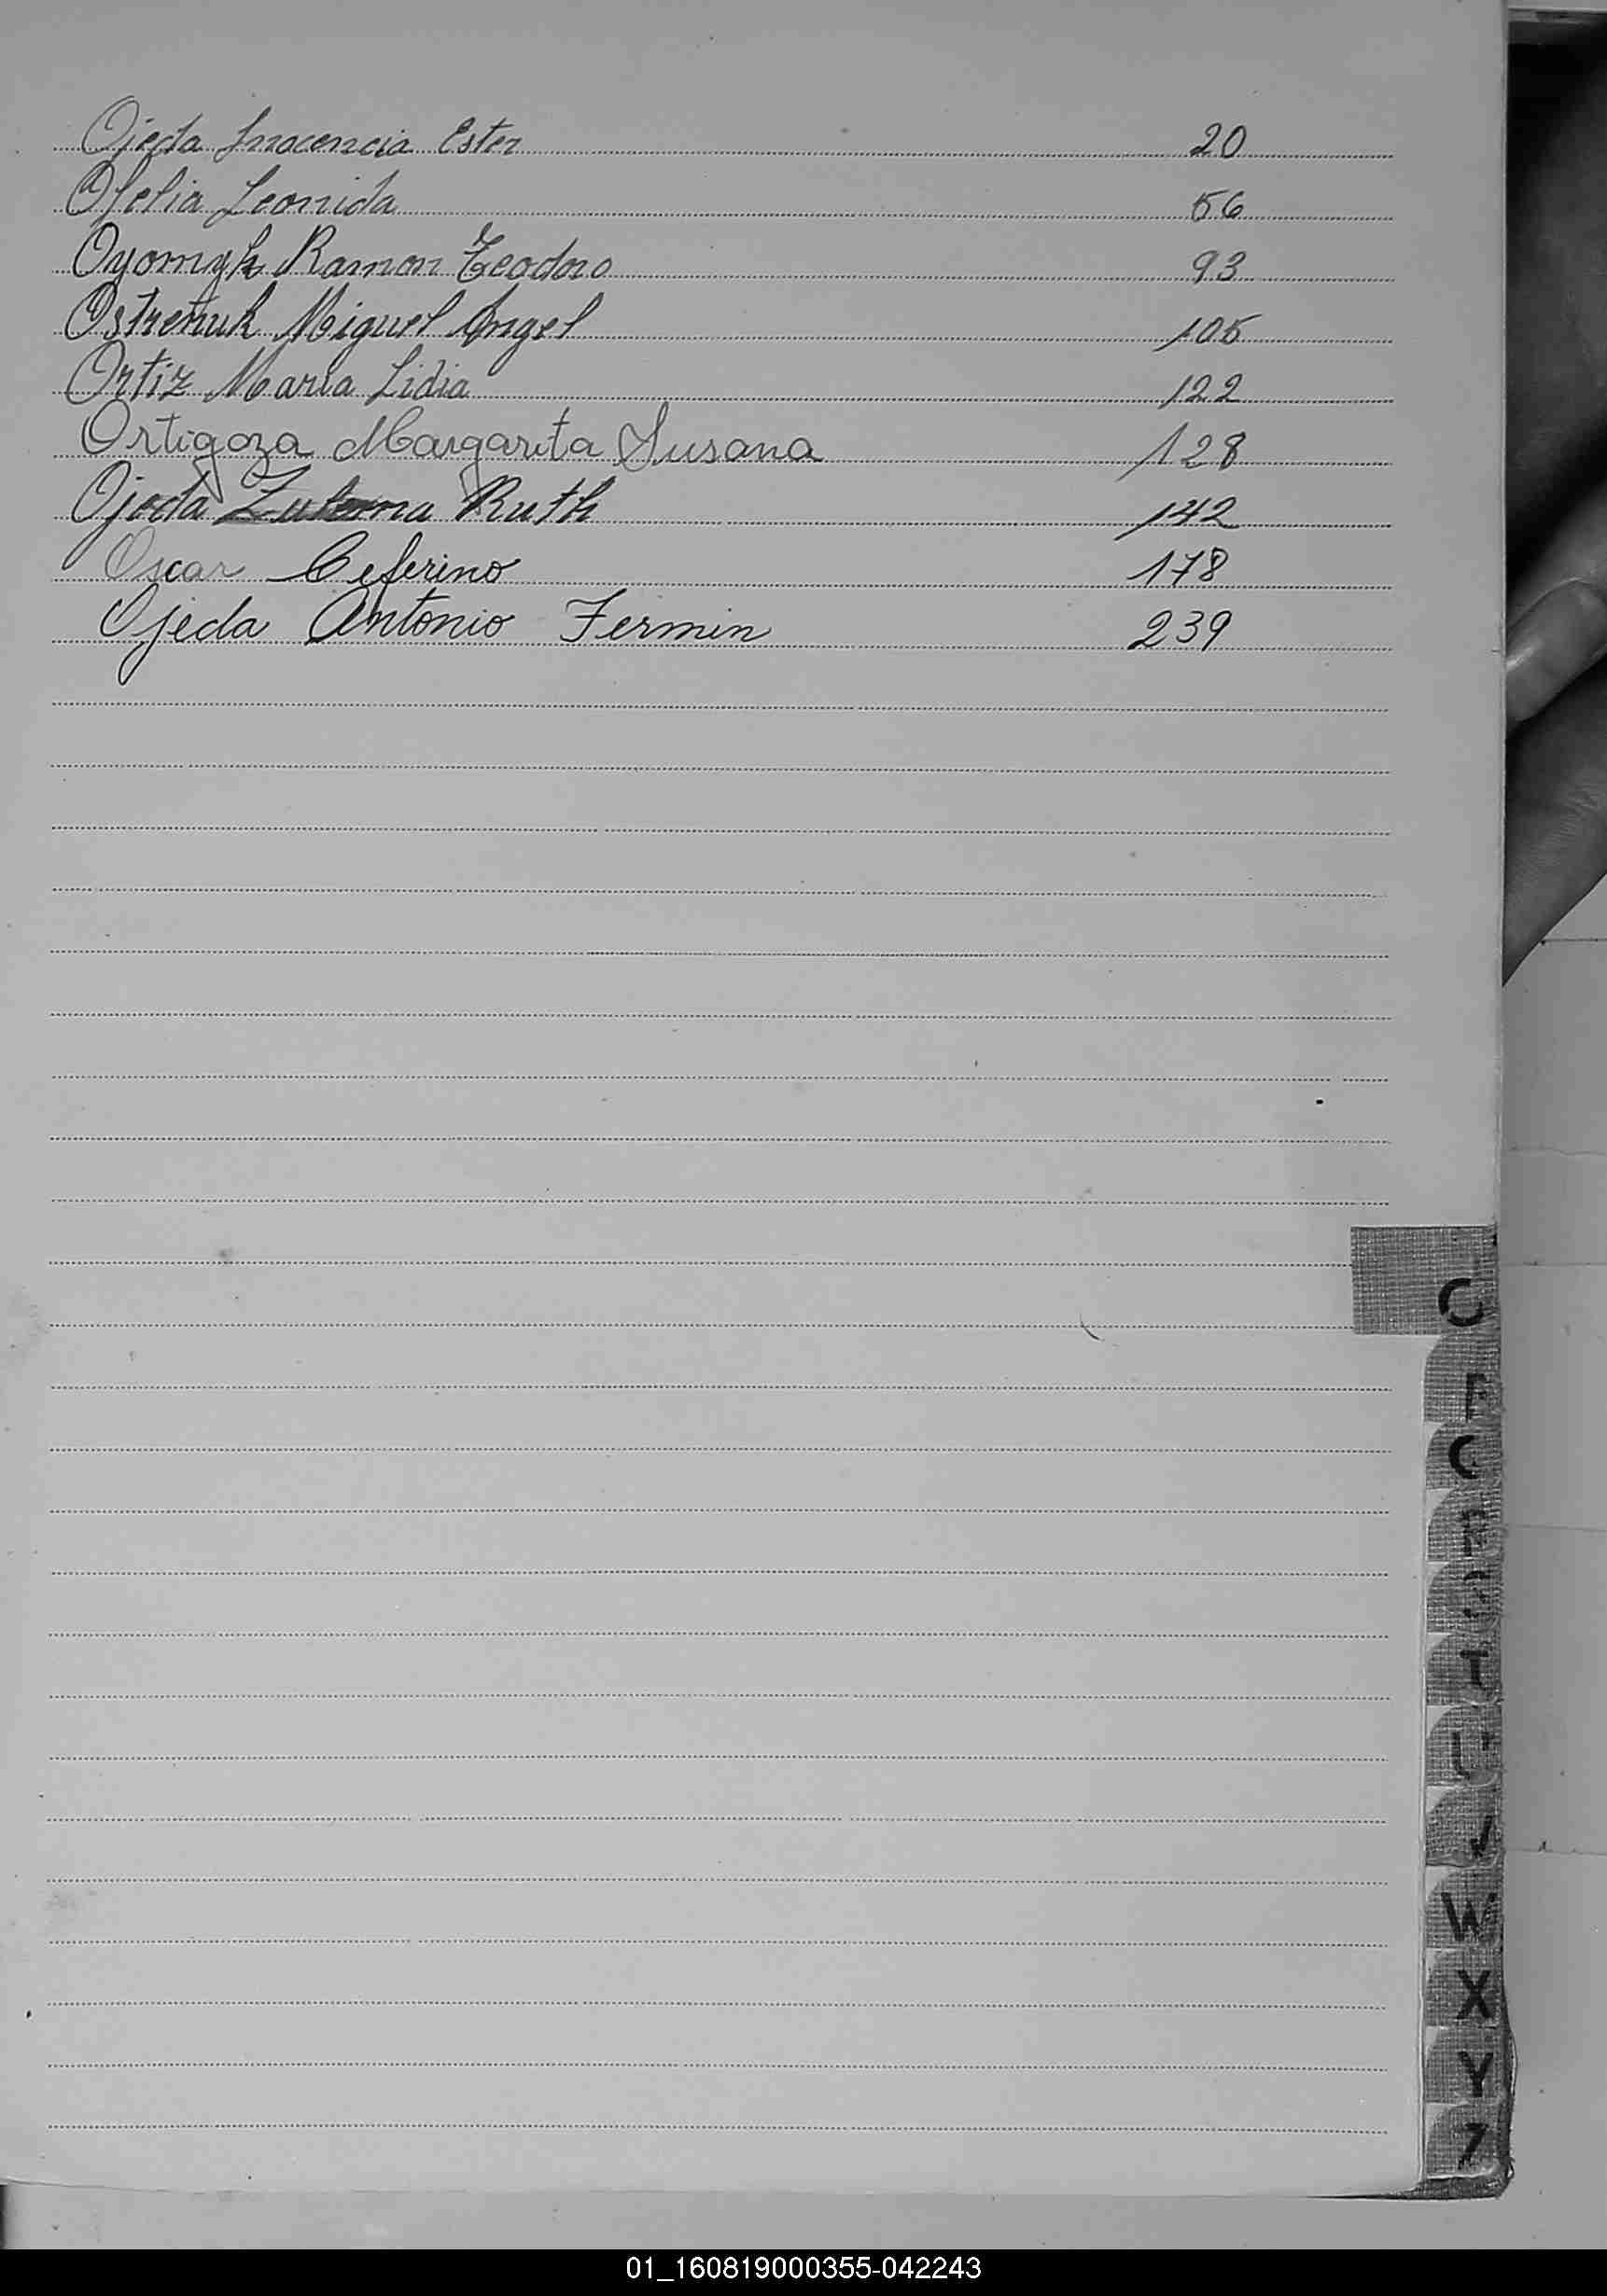 Ojeda Inocencia Ester 20
Ofelia Leonida 56
Oyomyk Ramon Teodoro 93
Ostreñuk Miguel Angel 105
Ortiz Maria Lidia 122
Ortigoza Margarita Susana 128
Ojeda Zulema Ruth 142
Oscar Ceferino 178
Ojeda Antonio Fermin 239
T
W
X
Y
Z
01_160819000355-042243